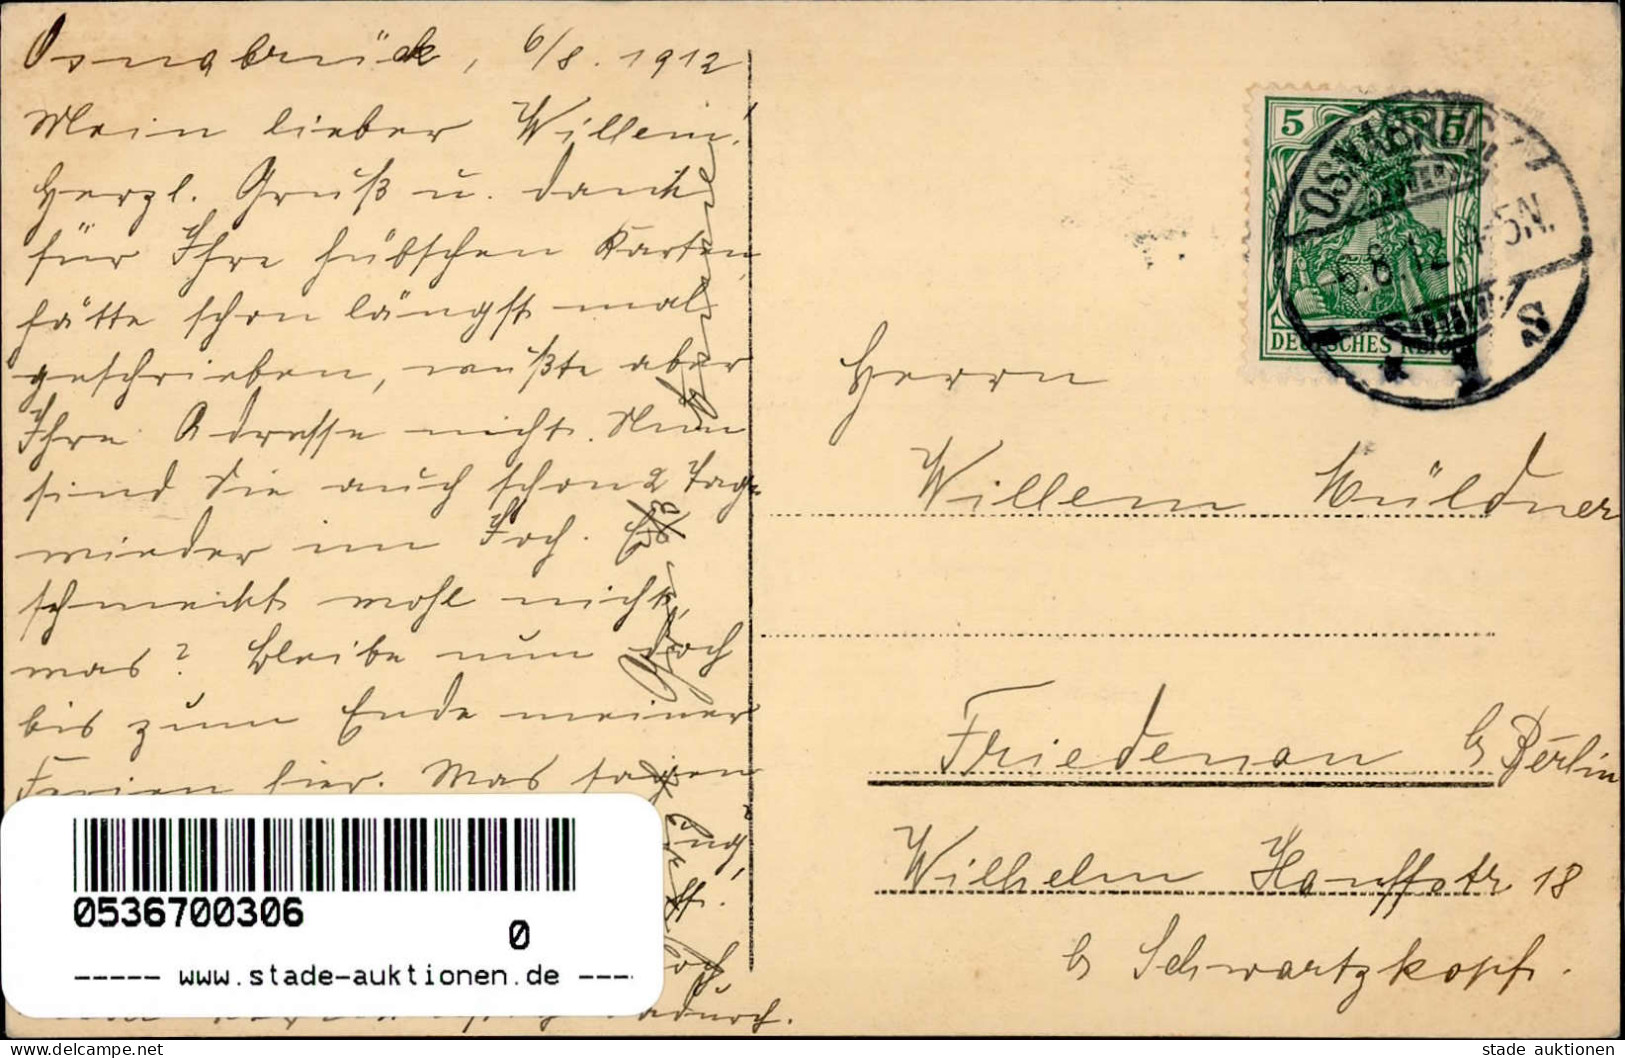 Osnabrück, 6/8. 1912
Mein lieber Willem!
Herzl. Gruß u. Dank
für Ihre hübschen Karten,
hätte schon längst mal
geschrieben, wußte aber
Ihre Adresse nicht. Nun
sind Sie auch schon 2 Tage
wieder im Joch. Es
schmeckt wohl nicht,
was? Bleibe nun doch
bis zum Ende meiner
Ferien hier. Was sagen
doch
dadurch.
5 5
DEUTSCHES REICH
OSNABRÜCK
6.8.12. 4-5N.
* 1 s
Herrn
Willem Müldner
Friedenau b/ Berlin
Wilhelm Hauffstr 18
b/ Schwartzkopf.
0536700306
0
----- www.stade-auktionen.de ---
www.delcampe.net
stade auktionen